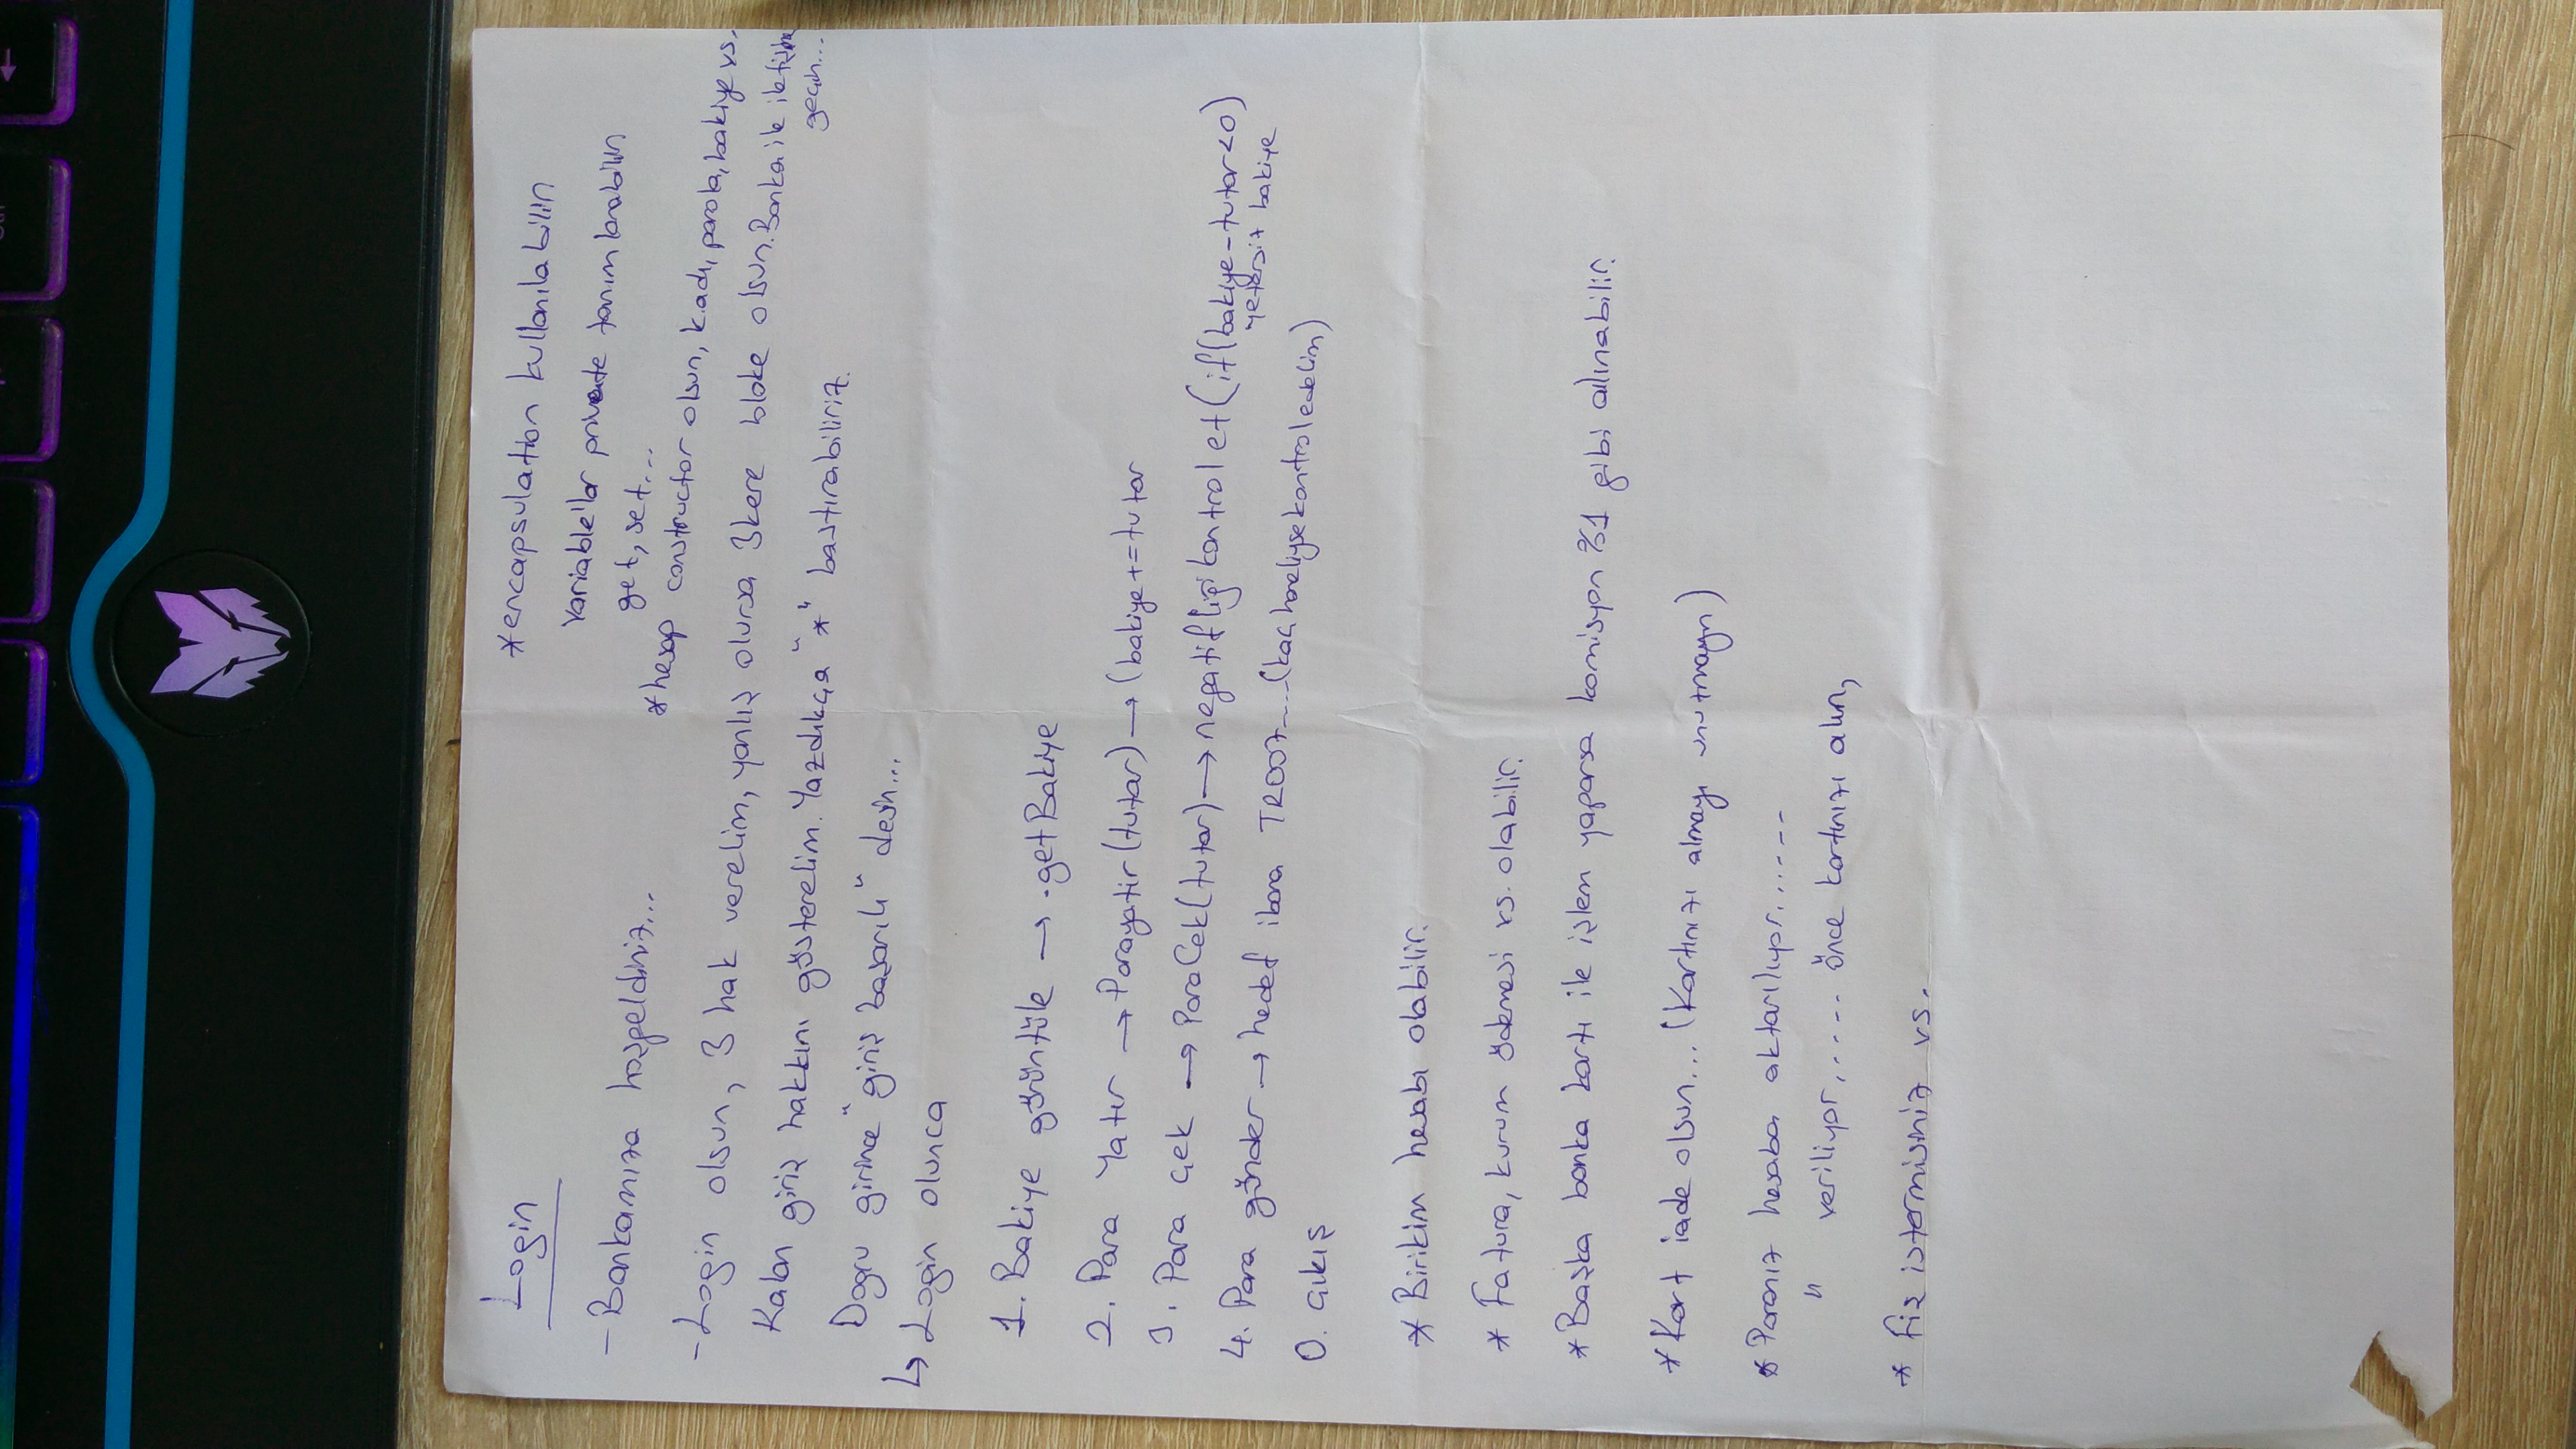 Login
*encapsulation kullanılabilir
Variable'lar private tanımlanabilir
get, set...
*hesap constructor olsun, k.adı, parola, bakiye vs.
- Bankamıza hoşgeldiniz...
- Login olsun, 3 hak verelim, yanlış olursa 3kere bloke olsun. Banka ile iletişime
geçin...
Kalan giriş hakkını gösterelim. Yazdıkça "*" bastırabiliriz.
Doğru girince "giriş başarılı" desin...
↳ Login olunca
1. Bakiye görüntüle → .getBakiye
2. Para Yatır → Parayatir(tutar) → (bakiye+=tutar
3. Para çek → ParaCek(tutar) → negatifliği kontrol et (if(bakiye-tutar<0)
yetersiz bakiye
4. Para gönder → hedef ibana TR007..... (kaç haneliyse kontrol edelim)
0. Çıkış
* Birikim hesabı olabilir.
* Fatura, kurum ödemesi vs. olabilir.
*Başka banka kartı ile işlem yaparsa komisyon %1 gibi alınabilir.
*Kart iade olsun... (Kartınızı almayı unutmayın)
* Paranız hesaba aktarılıyor......
" veriliyor,..... önce kartınızı alın,
* Fiş istermisiniz vs.